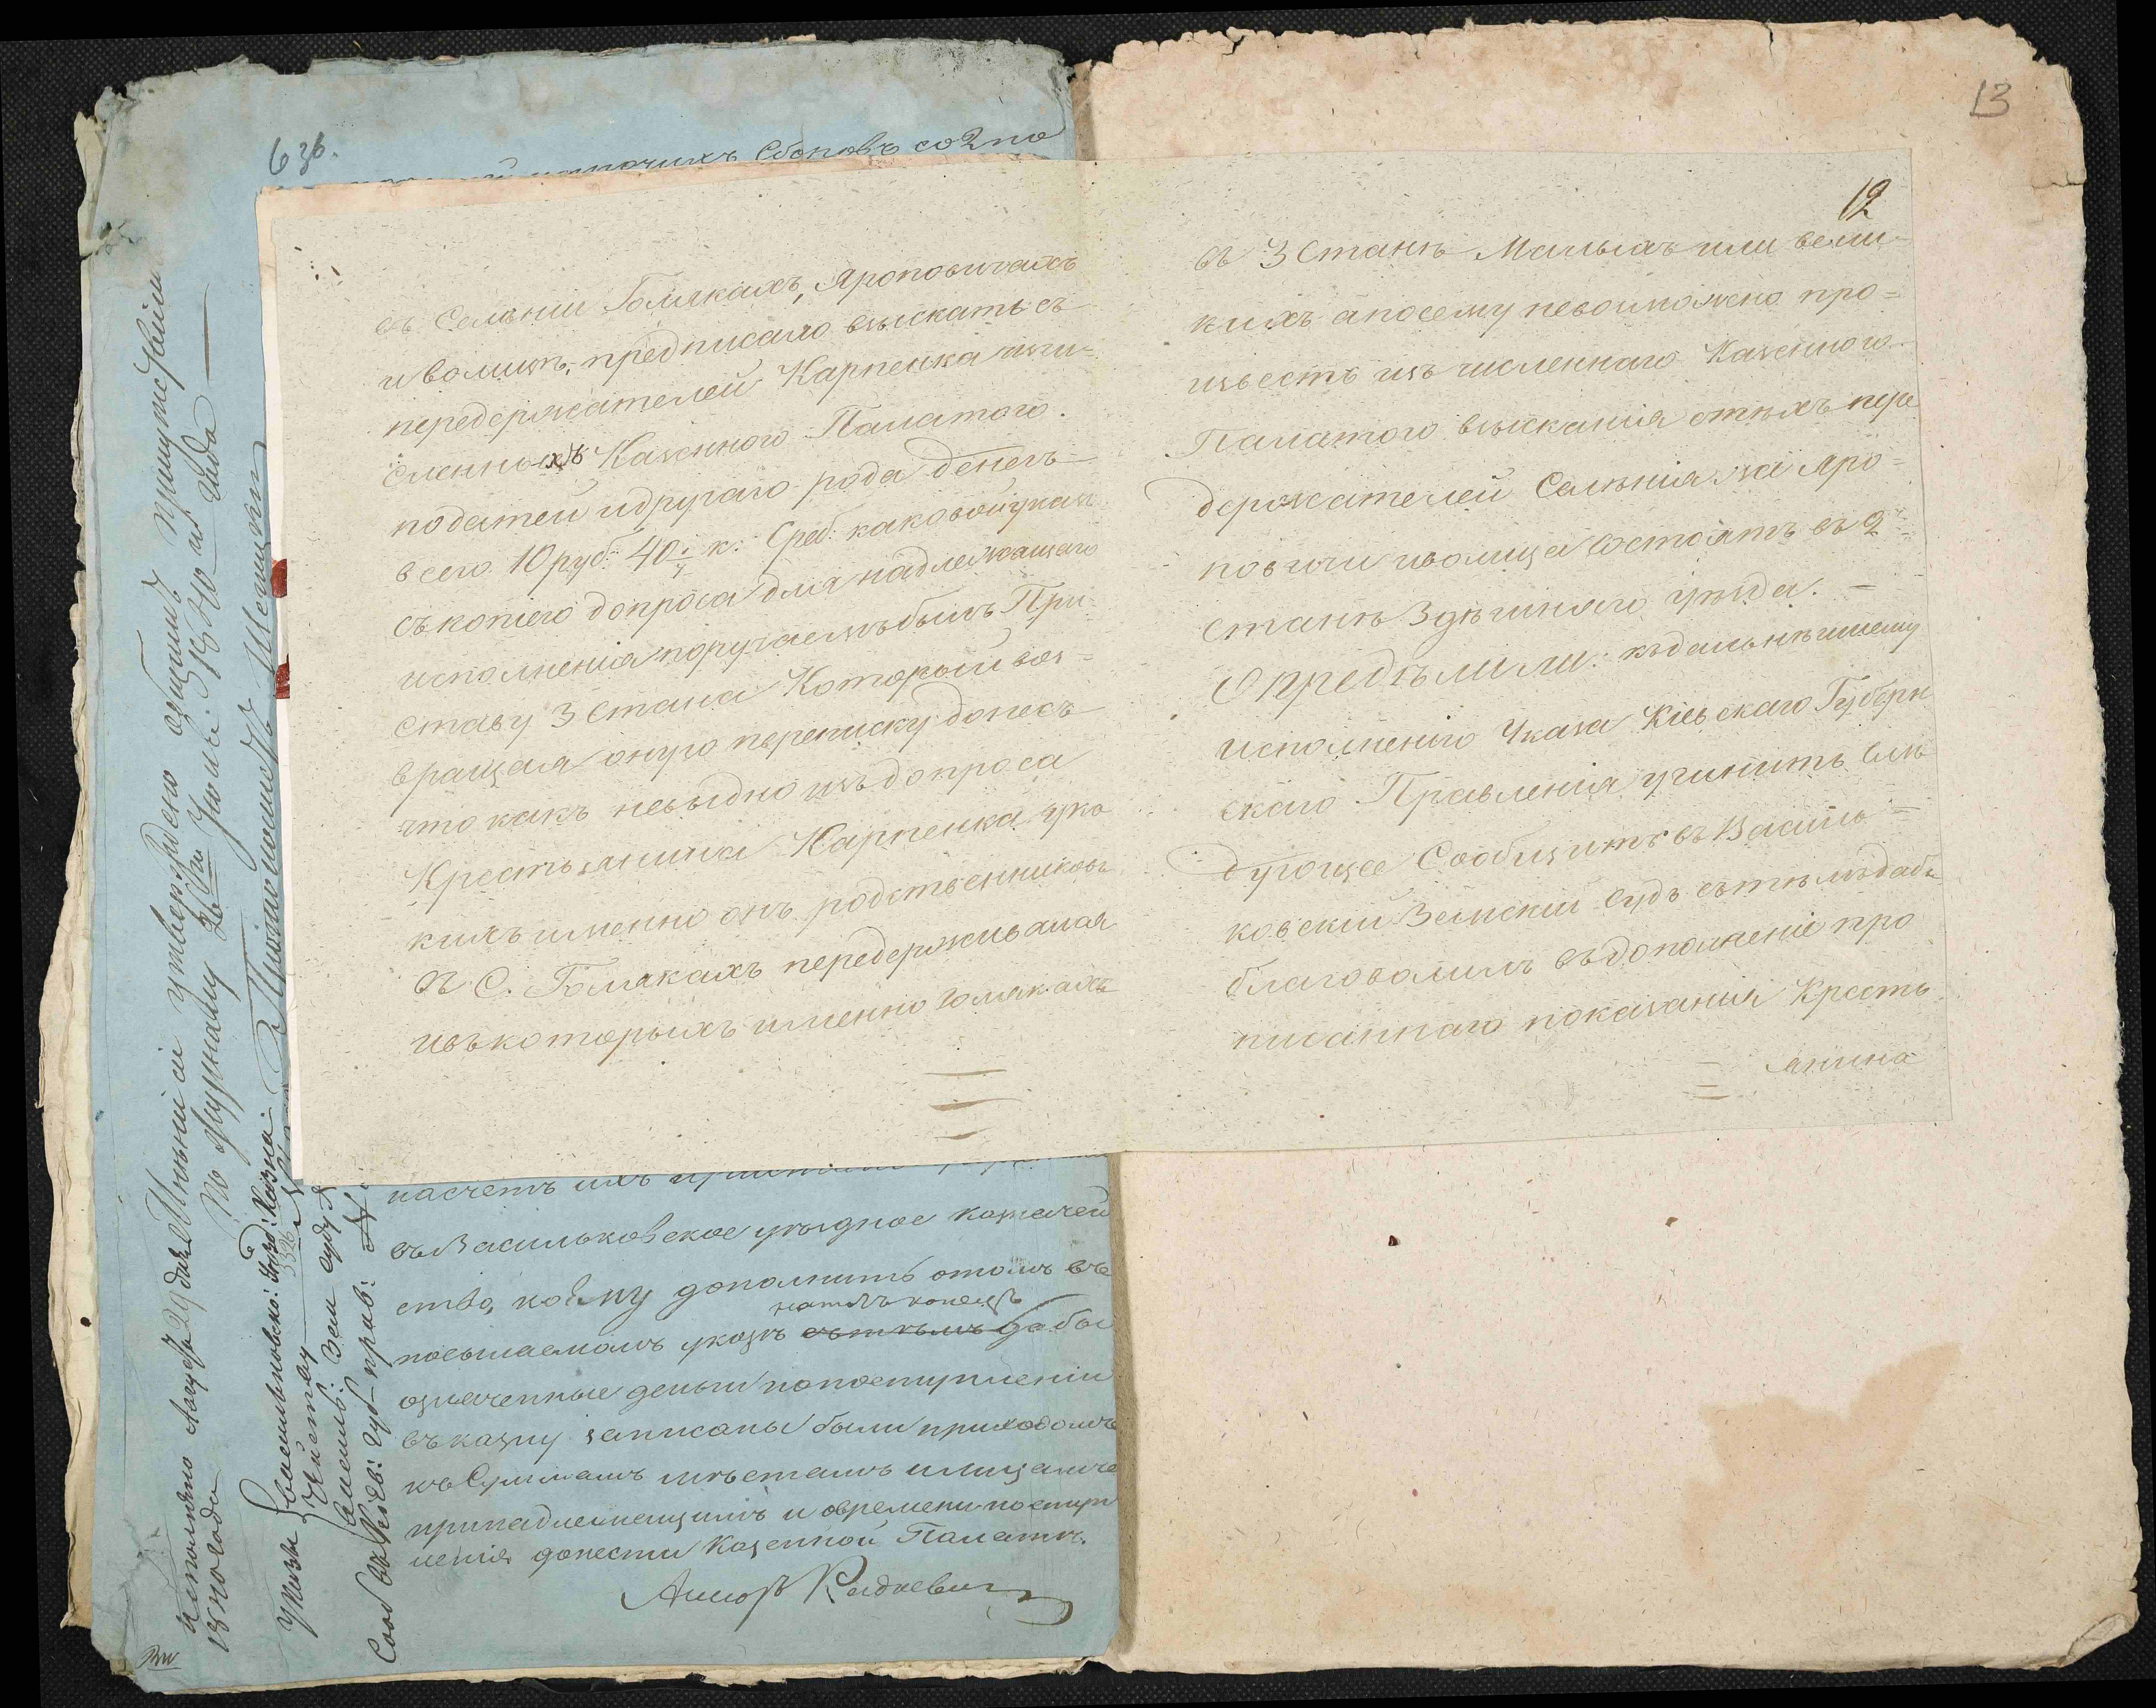 63б.
прочихъ Сборовъ со 2 по
въ Селеніи Гомякахъ, Яроповичахъ
и волицѣ, предписало взыскать съ
передержателей Карпенка исчи=
сленныхъ Казенною Палатою.
податей и другаго рода денегъ
всего 10 руб: 40 к: Сереб: каковой указъ
съ копіею допроса для надлежащаго
исполненія поручаемъ былъ При
ставу 3 Стана Который воз=
вращая оную переписку донесъ
что какъ невидно изъ допроса
Крестьянина Карпенка у ка
кихъ именно онъ родственниковъ
въ С. Гомякахъ передерживался
и въ которыхъ именно Гомякахъ
12
въ 3 Станѣ Малыхъ или вели-
кихъ а посему невозможно про=
известь изъ численнаго Казенною
Палатою взысканія отъ тѣхъ пере
держателей Селенія же Яро=
повичи и волица состоятъ въ 2
Станѣ Здѣшняго уѣзда. —
Опредѣлили: къ дальнѣйшему
исполненію Указа Кіевскаго Губерн
скаго Правленія учинить слѣ
дующее Сообщить въ Василь=
ковскій Земскій Судъ съ тѣмъ дабы
благоволилъ въ дополненіе про
писаннаго показанія Кресть
янина
13
насчетъ ихъ
въ Васильковское уѣздное казначей
ство, коему дополнить о томъ въ
на тотъ конецъ
посылаемомъ указѣ съ тѣмъ дабы
означенные деньги по поступленіи
въ казну записаны были приходомъ
къ Суммамъ мѣстамъ и лицамъ
принадлежащимъ и о времени поступ
ленія донести Казенной Палатѣ.
Ассесоръ Радкевичъ
исполнено Августа 29 дня
18 года
Мнѣніи утвердено общимъ присутствіемъ
По Журналу 26 Іюня 18 года
Указы Васильковско: уѣзд: Казна:
3326
Земск: Зем суду
Сооб въ Кіев: губ прав: